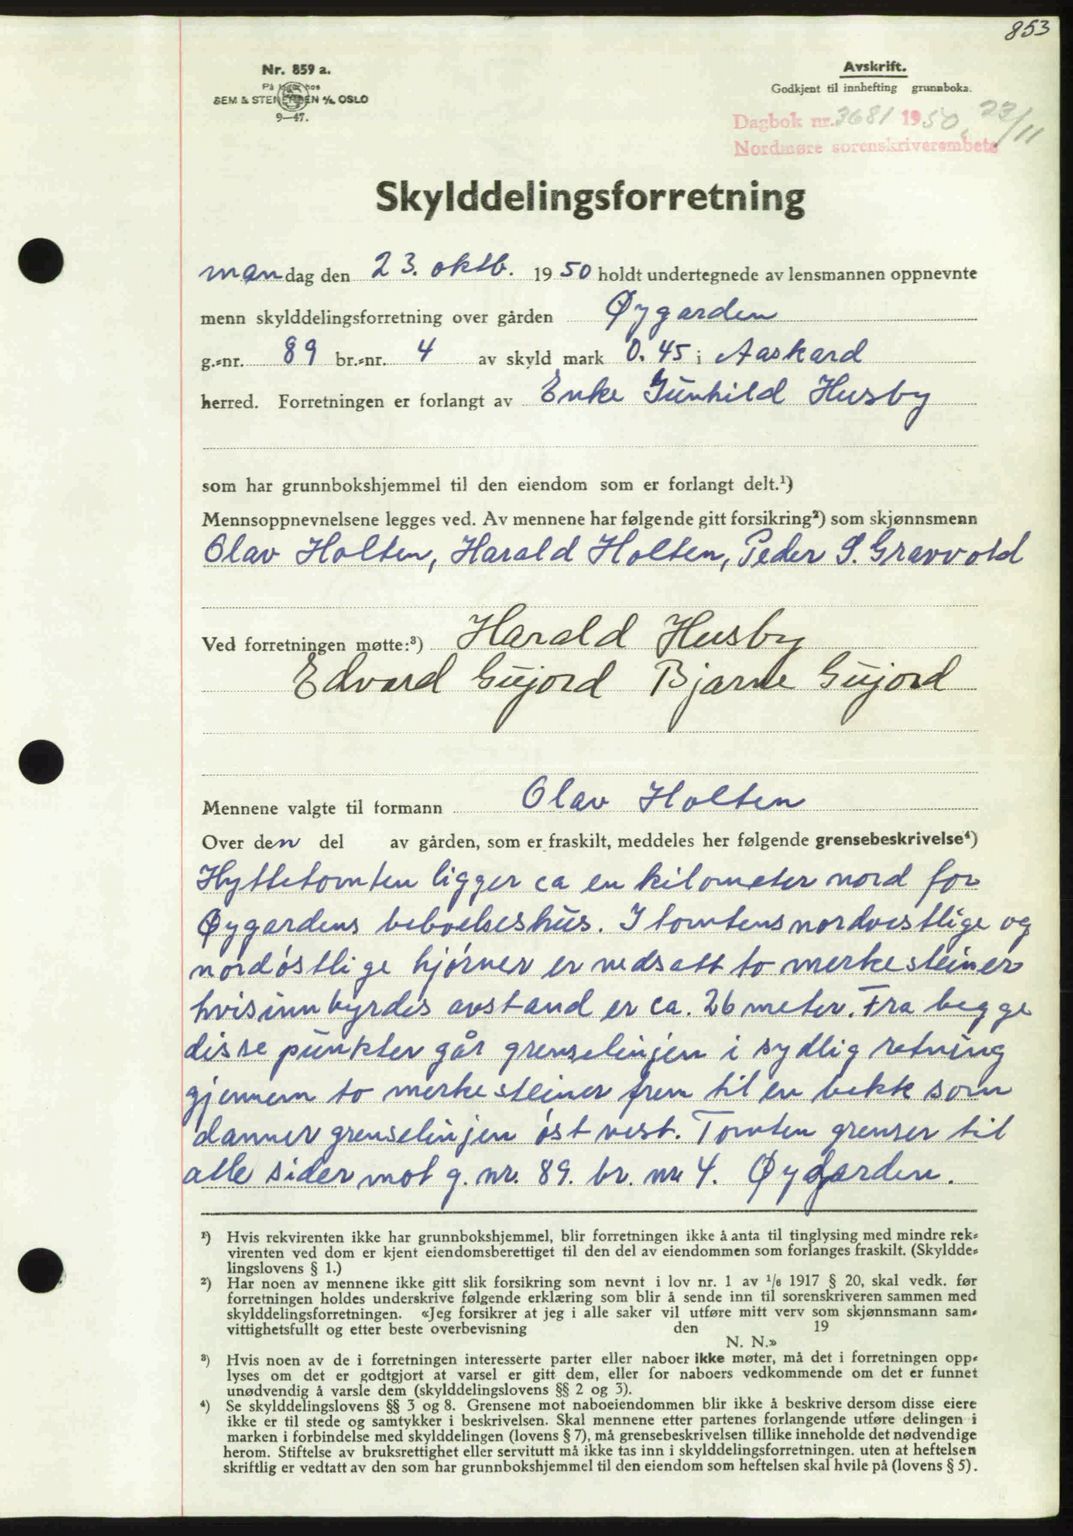 853
Nr. 859 a.
På lager hos
SEM & STENERSEN A/S, OSLO
9—47.
Avskrift.
Godkjent til innhefting grunnboka.
Dagbok nr. 3681 1950, 23/11
Nordmøre sorenskriverembete
Skylddelingsforretning
mandag den 23. oktb. 1950 holdt undertegnede av lensmannen oppnevnte
menn skylddelingsforretning over gården Øygarden
g.-nr. 89 br.-nr. 4 av skyld mark 0.45 i Aaskard
herred. Forretningen er forlangt av Enke Gunhild Husby
som har grunnbokshjemmel til den eiendom som er forlangt delt.¹)
Mennsoppnevnelsene legges ved. Av mennene har følgende gitt forsikring²) som skjønnsmenn
Olav Holten, Harald Holten, Peder S. Gravvold
Ved forretningen møtte:³) Harald Husby
Edvard Gujord Bjarne Gujord
Mennene valgte til formann Olav Holten
Over den del av gården, som er fraskilt, meddeles her følgende grensebeskrivelse⁴)
Hyttetomten ligger ca en kilometer nord for
Øygardens beboelseshus. I tomtens nordvestlige og
nordøstlige hjørner er nedsatt to merkesteiner
hvis innbyrdes avstand er ca. 26 meter. Fra begge
disse punkter går grenselinjen i sydlig retning
gjennem to merkesteiner frem til en bekk som
danner grenselinjen øst vest. Tomten grenser til
alle sider mot g. nr. 89. br. nr 4. Øygarden.
¹) Hvis rekvirenten ikke har grunnbokshjemmel, blir forretningen ikke å anta til tinglysing med mindre rek-
virenten ved dom er kjent eiendomsberettiget til den del av eiendommen som forlanges fraskilt. (Skyldde-
lingslovens § 1.)
²) Har noen av mennene ikke gitt slik forsikring som nevnt i lov nr. 1 av 1/6 1917 § 20, skal vedk. før
forretningen holdes underskrive følgende erklæring som blir å sende inn til sorenskriveren sammen med
skylddelingsforretningen. «Jeg forsikrer at jeg i alle saker vil utføre mitt verv som skjønnsmann sam-
vittighetsfullt og etter beste overbevisning den 19
N. N.»
³) Hvis noen av de i forretningen interesserte parter eller naboer ikke møter, må det i forretningen opp-
lyses om det er godtgjort at varsel er gitt dem, eller for naboers vedkommende om det er funnet
unødvendig å varsle dem (skylddelingslovens §§ 2 og 3).
⁴) Se skylddelingslovens §§ 3 og 8. Grensene mot naboeiendommen blir ikke å beskrive dersom disse eiere
ikke er til stede og samtykker i beskrivelsen. Skal mennene etter partenes forlangende utføre delingen i
marken i forbindelse med skylddelingen (lovens § 7), må grensebeskrivelsen tillike inneholde det nødvendige
herom. Stiftelse av bruksrettighet eller servitutt må ikke tas inn i skylddelingsforretningen. uten at heftelsen
skriftlig er vedtatt av den som har grunnbokshjemmel til den eiendom som heftelsen skal hvile på (lovens § 5).